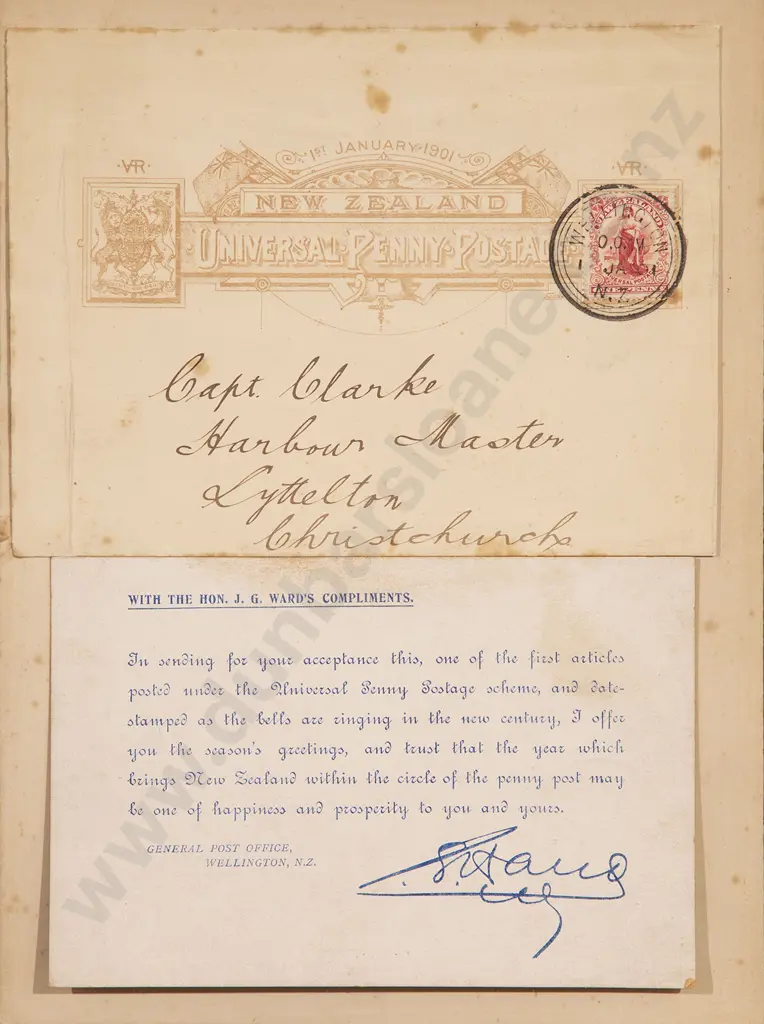 1ST JANUARY 1901
VR VR
NEW ZEALAND
UNIVERSAL PENNY POSTAGE
WELLINGTON
1 JA 01
N.Z.
Capt. Clarke
Harbour Master
Lyttelton
Christchurch
WITH THE HON. J. G. WARD'S COMPLIMENTS.
In sending for your acceptance this, one of the first articles
posted under the Universal Penny Postage scheme, and date-
stamped as the bells are ringing in the new century, I offer
you the season's greetings, and trust that the year which
brings New Zealand within the circle of the penny post may
be one of happiness and prosperity to you and yours.
GENERAL POST OFFICE,
WELLINGTON, N.Z.